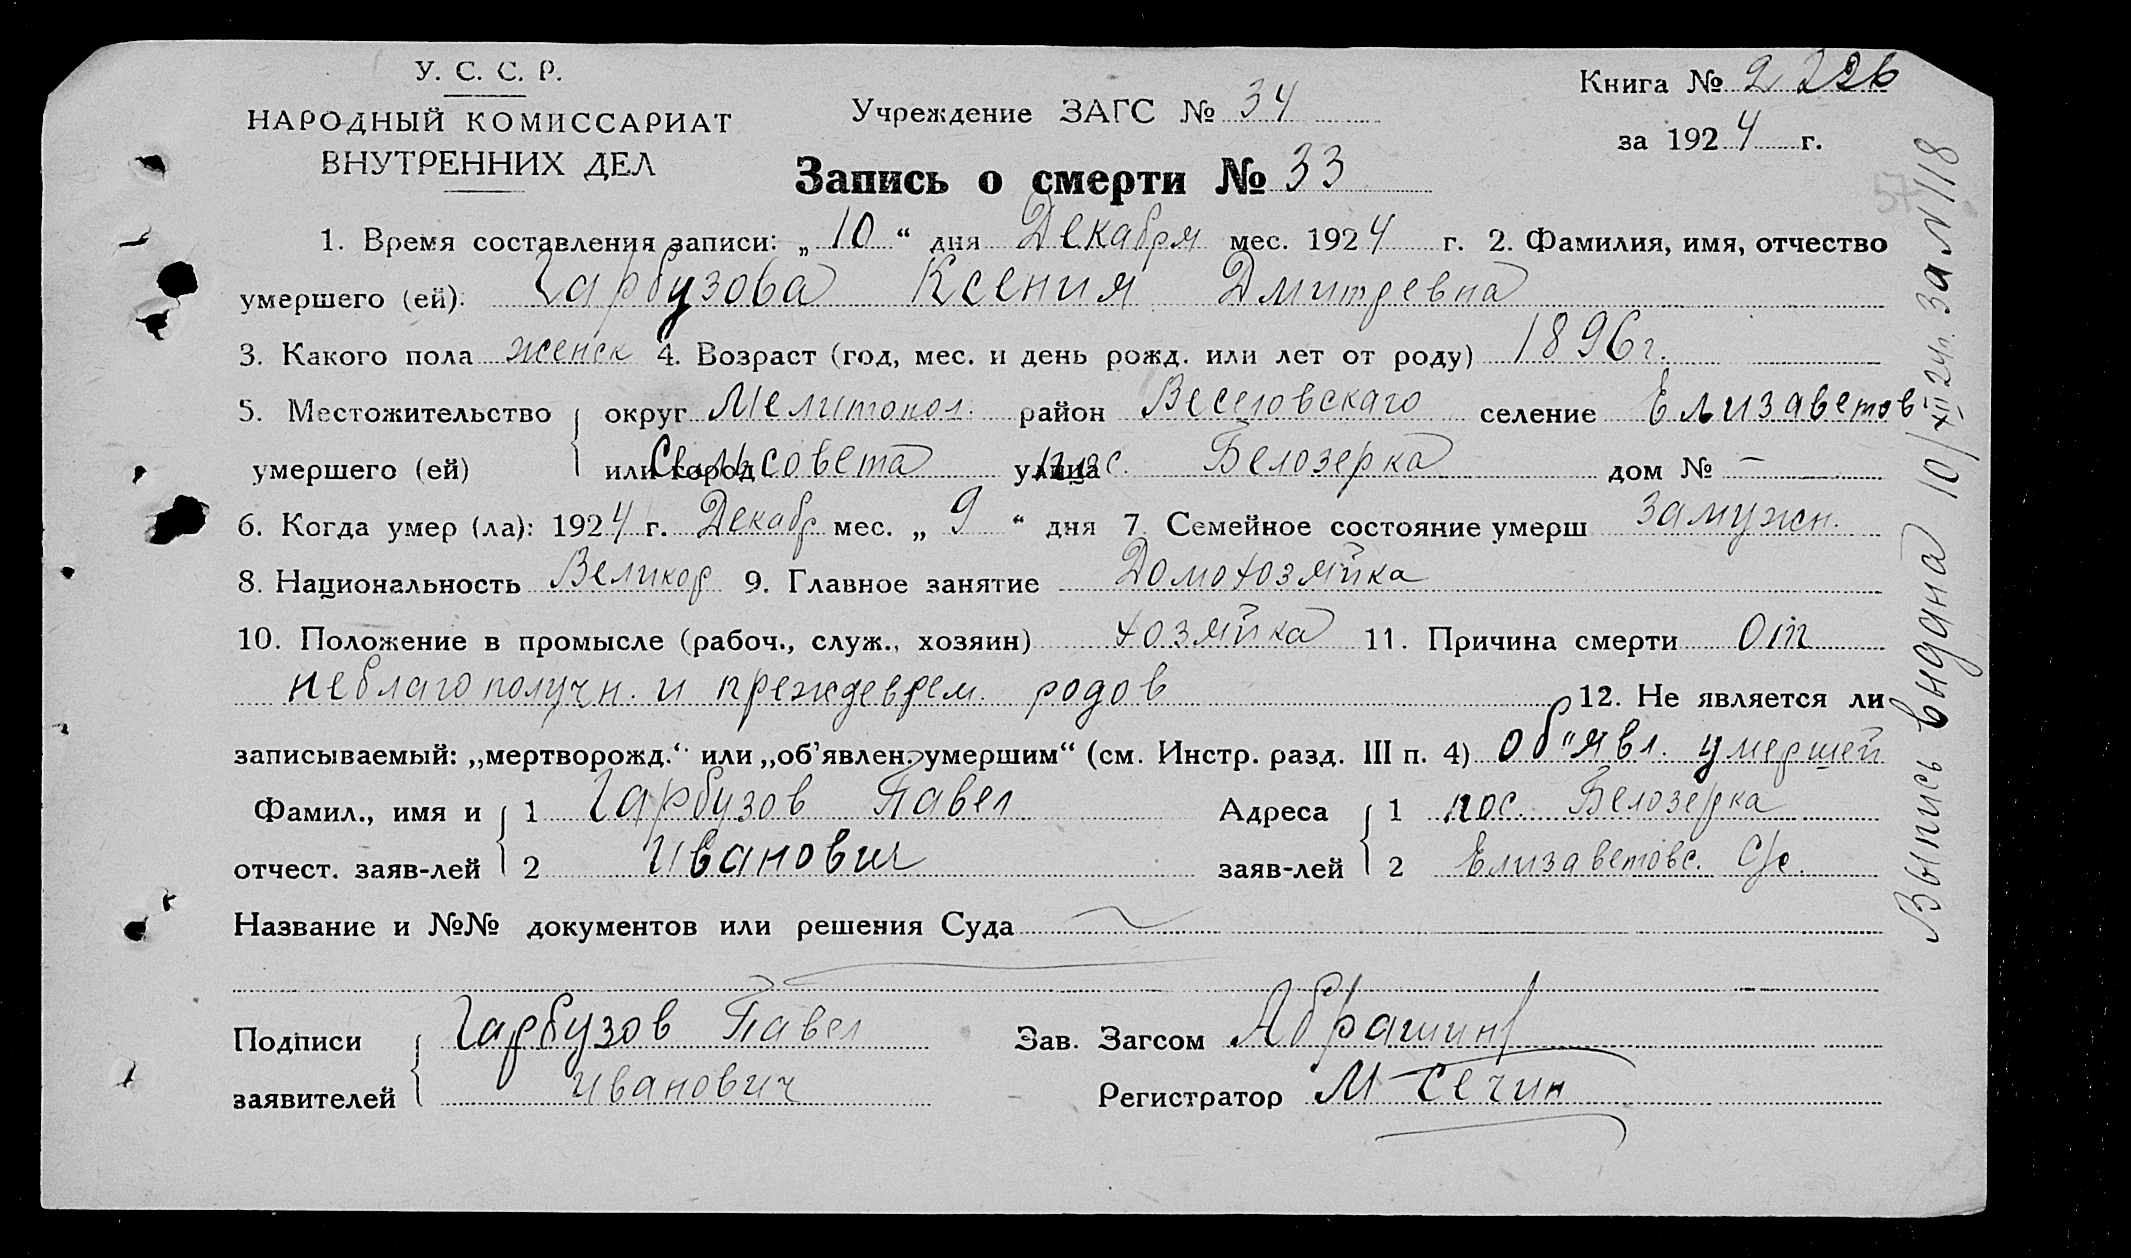 У. С. С. Р.
НАРОДНЫЙ КОМИССАРИАТ
ВНУТРЕННИХ ДЕЛ
Учреждение ЗАГС № 34
Книга № 2
за 1924 г.
Запись о смерти № 33
1. Время составления записи: „10“ дня Декабря мес. 1924 г. 2. Фамилия, имя, отчество
умершего (ей): Гарбузова Ксения Дмитревна
3. Какого пола женск 4. Возраст (год, мес. и день рожд. или лет от роду) 1896 г.
5. Местожительство округ Мелитопол. район Веселовскаго селение Елизаветов
умершего (ей) или город Сельсовета улица пос. Белозерка дом № —
6. Когда умер (ла): 1924 г. Декабр мес. „9“ дня 7. Семейное состояние умерш замужн.
8. Национальность Великор 9. Главное занятие Домохозяйка
10. Положение в промысле (рабоч., служ., хозяин) хозяйка 11. Причина смерти От
неблагополучн. и преждеврем. родов 12. Не является ли
записываемый: „мертворожд.“ или „об’явлен. умершим“ (см. Инстр. разд. III п. 4) об"явл. умершей
Фамил., имя и 1 Гарбузов Павел Адреса 1 пос. Белозерка
отчест. заяв-лей 2 Иванович заяв-лей 2 Елизаветовс. С/с.
Название и №№ документов или решения Суда
Подписи Гарбузов Павел Зав. Загсом Абрашин
заявителей Иванович Регистратор М Сечин
Выпись выдана 10/XII 24г. за № 118
57